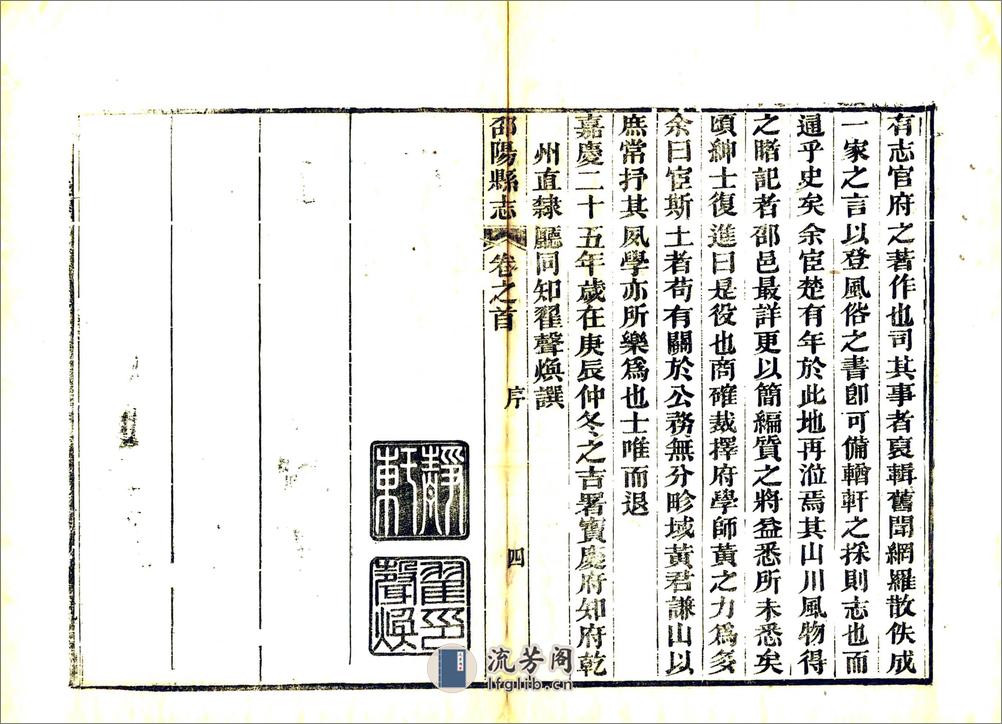 有志官府之著作也司其事者裒輯舊聞網羅散佚成
一家之言以登風俗之書卽可備輶軒之採則志也而
通乎史矣余宦楚有年於此地再涖焉其山川風物得
之睹記者邵邑最詳更以簡編質之將益悉所未悉矣
頃紳士復進曰是役也商確裁擇府學師黃之力爲多
余曰宦斯土者苟有關於公務無分畛域黃君謙山以
庶常抒其夙學亦所樂爲也士唯而退
嘉慶二十五年歲在庚辰仲冬之吉署寶慶府知府乾
州直隸廳同知翟聲煥譔
邵陽縣志 卷之首 序 四
靜軒
翟聲煥印
流芳阁
lfglib.cn